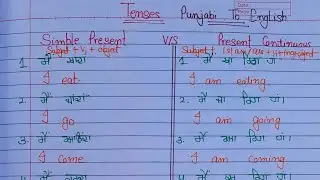 Tenses Punjabi To English
Simble Present V/S Present Continuous
Subject + V1 + object Subject + is/am/are + ing+object
1. ਮੈਂ ਖਾਂਦਾ 1. ਮੈਂ ਖਾ ਰਿਹਾ ਹਾਂ।
I eat. I am eating.
2. ਮੈਂ ਜਾਂਦਾ 2. ਮੈਂ ਜਾ ਰਿਹਾ ਹਾਂ।
I go I am going
3. ਮੈਂ ਆਉਂਦਾ 3. ਮੈਂ ਆ ਰਿਹਾ ਹਾਂ।
I Come I am Coming
4. ਮੈਂ 4. ਮੈਂ